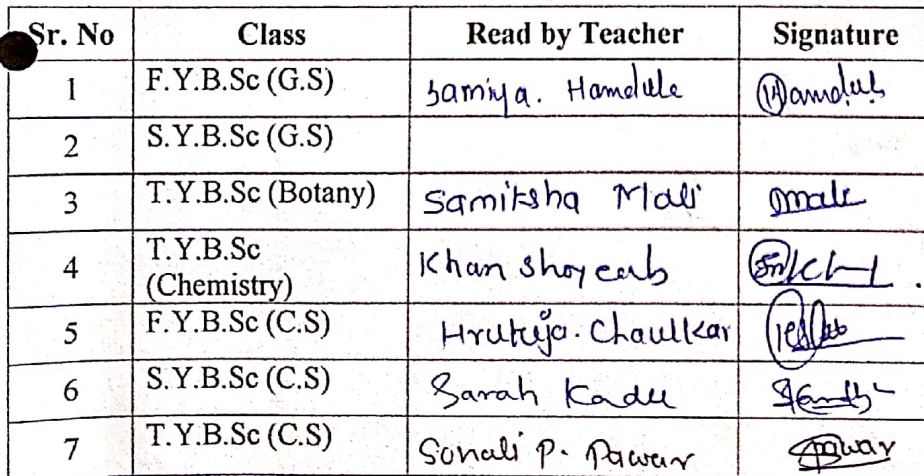 Sr. No Class Read by Teacher Signature
1 F.Y.B.Sc (G.S) Samiya. Hamdule Hamdule
2 S.Y.B.Sc (G.S)
3 T.Y.B.Sc (Botany) Samiksha Mali Mali
4 T.Y.B.Sc
(Chemistry) Khan Shoyeab
5 F.Y.B.Sc (C.S) Hrutuja. Chaulkar
6 S.Y.B.Sc (C.S) Sarah Kadu
7 T.Y.B.Sc (C.S) Sonali P. Pawar Pawar